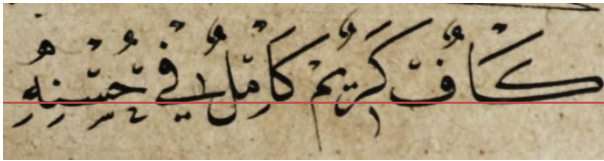 كَافُ كَرِيمٌ كَامِلٌ فِي حُسْنِهِ